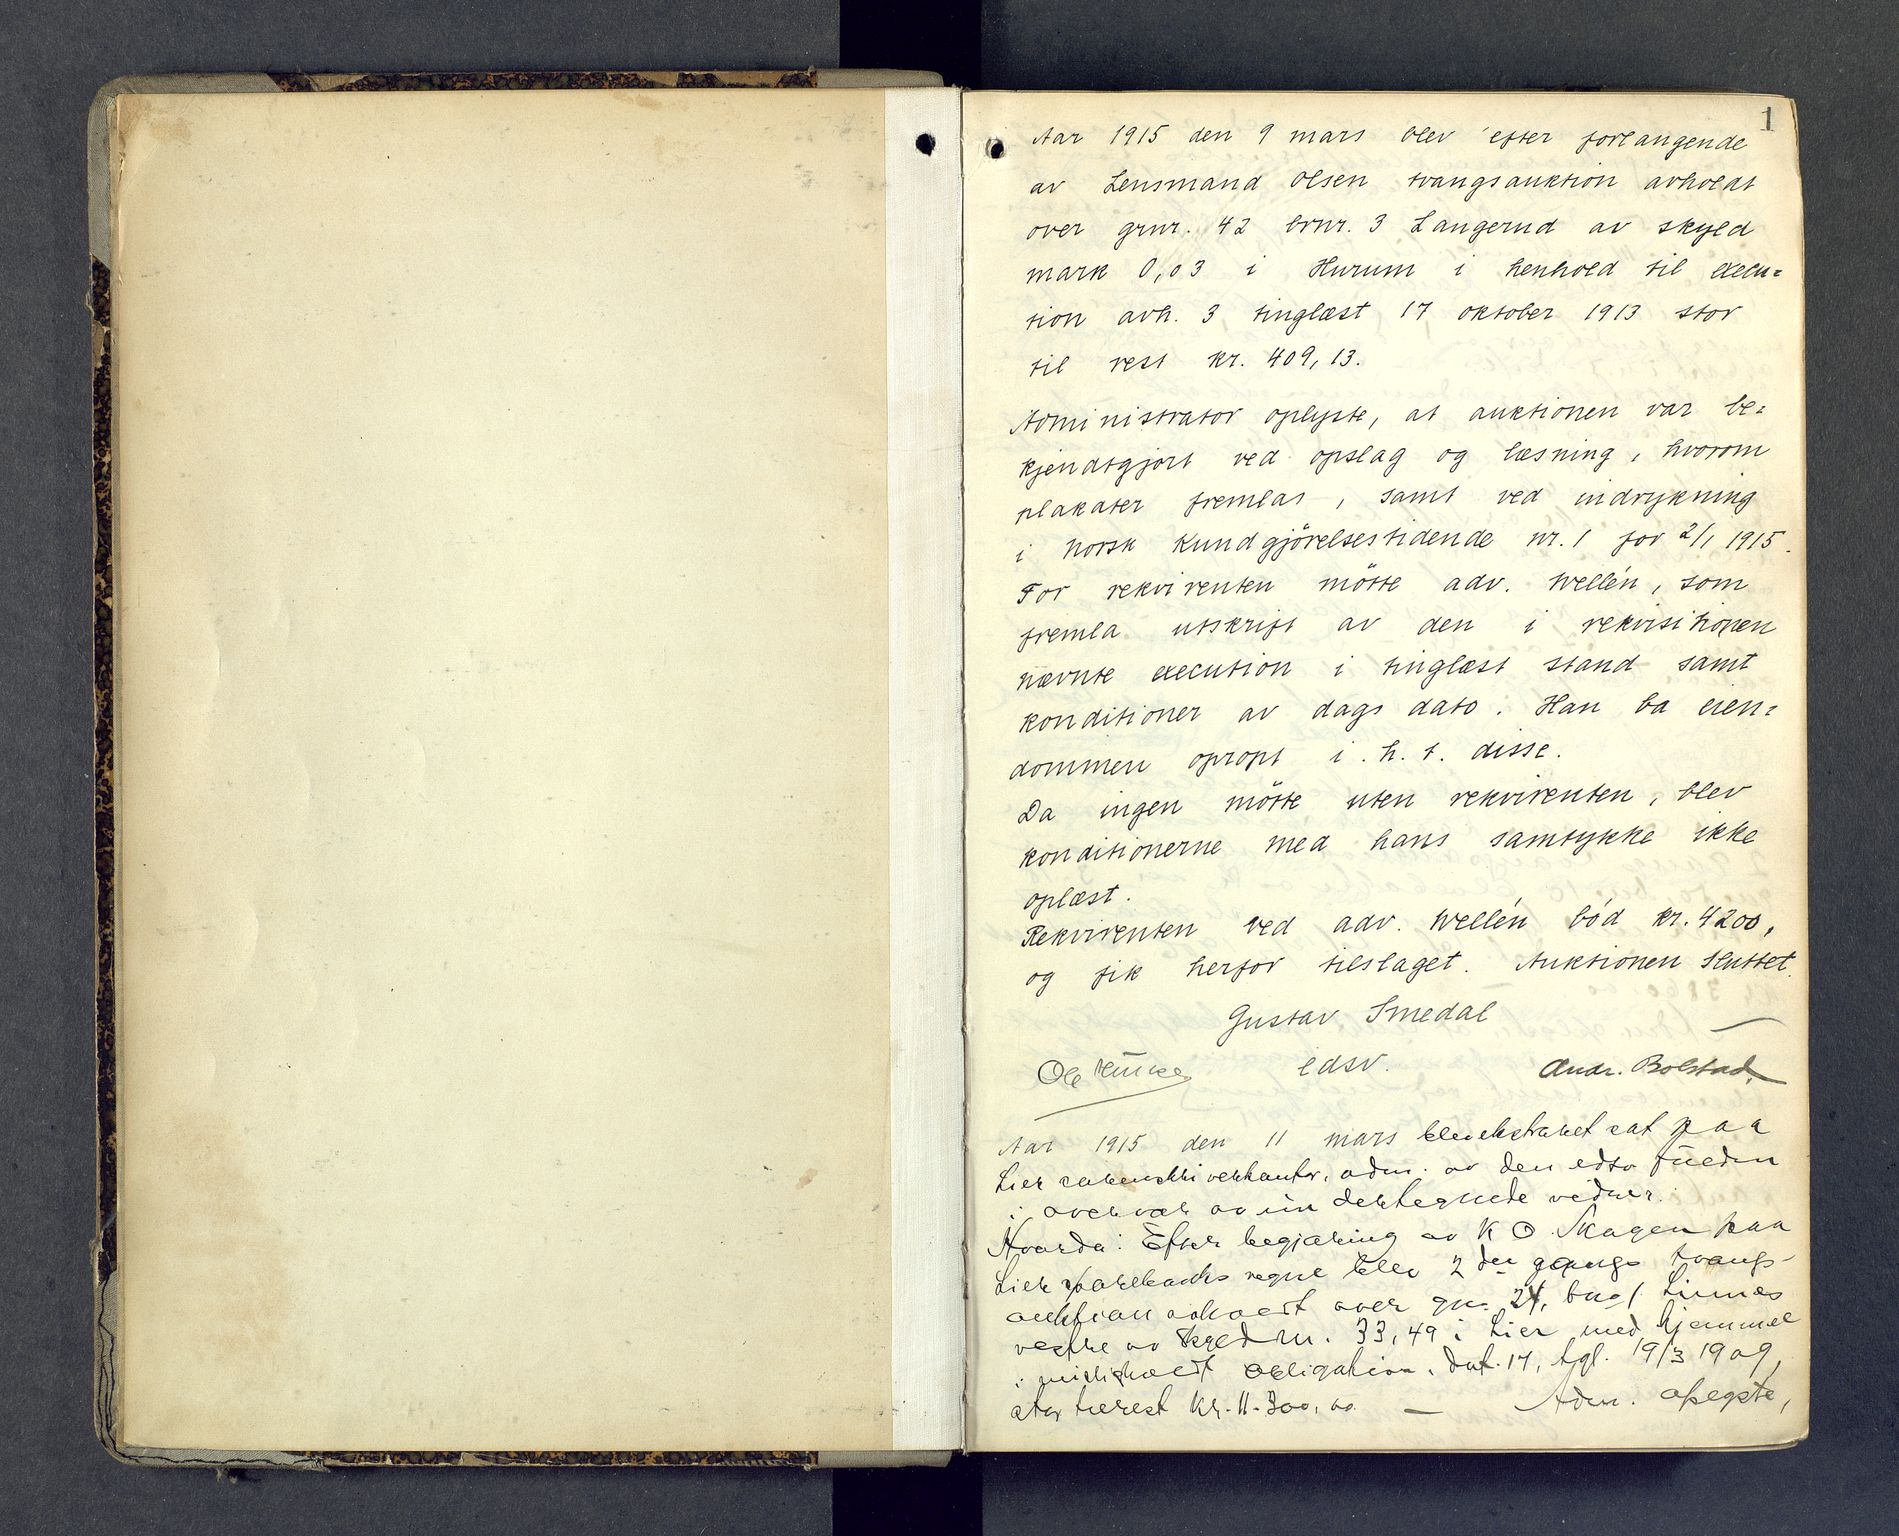 1
Aar 1915 den 9 mars blev efter forlangende
av Lensmand Olsen tvangsauktion avholdt
over grnr. 42 brnr. 3 Langerud av skyld
mark 0,03 i Hurum i henhold til execu=
tion avh. 3 tinglæst 17 oktober 1913 stor
til rest kr. 409,13.
Administrator oplyste, at auktionen var be=
kjendtgjort ved opslag og læsning, hvorom
plakater fremlas, samt ved indrykning
i norsk kundgjörelsestidende nr. 1 for 2/1 1915.
For rekvirenten mötte adv. Wellén, som
fremla utskrift av den i rekvisitionen
nævnte execution i tinglæst stand samt
konditioner av dags dato. Han ba eien=
dommen opropt i. h. t. disse.
Da ingen mötte uten rekvirenten, blev
konditionerne med hans samtykke ikke
oplæst.
Rekvirenten ved adv. Wellén bód kr. 4200,
og fik herfor tilslaget. Auktionen sluttet.
Gustav Smedal
Ole edsv. Andr. Bolstad.
Aar 1915 den 11 mars blev ekstraret sat paa
Lier sorenskriverkontor, adm. av den edsv
i overvær av undertegnede vidner.
Hvorda: Efter begjæring av K O Skagen paa
Lier sparebanks vegne blev 2den gangs tvangs-
auktion avholdt over gn. 21, bn. 1 Linnes
vestre av skyld m. 33,49 i Lier med hjemmel
i misligholdt obligation, dat. 17, tgl. 19/3 1909,
stor til rest kr. 11.300,00. — Adm. oplyste,